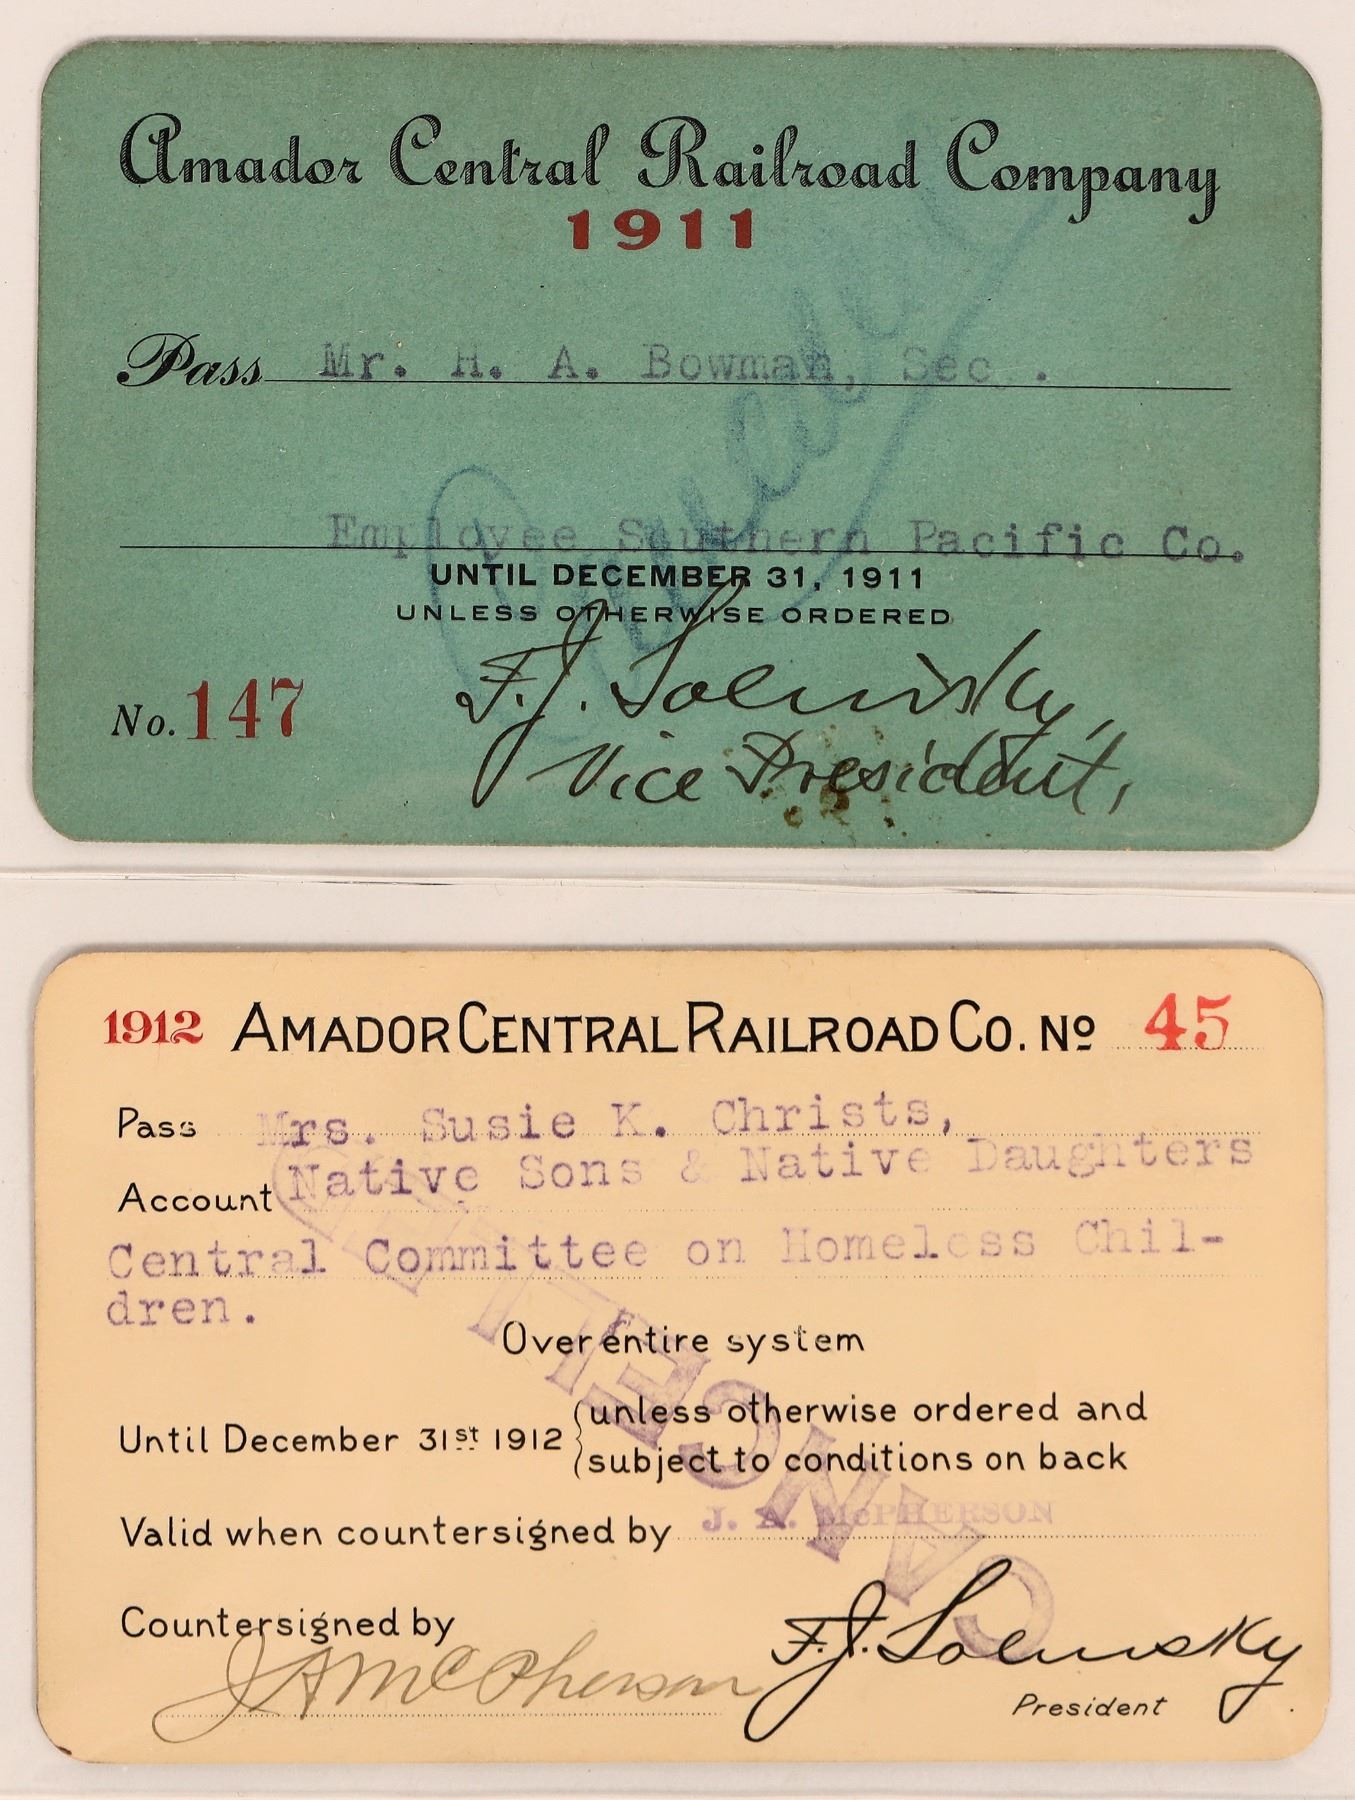 Amador Central Railroad Company
1911
Pass Mr. H. A. Bowman, Sec .
Employee Southern Pacific Co.
UNTIL DECEMBER 31, 1911
UNLESS OTHERWISE ORDERED
No. 147
F. J. Solinsky,
Vice President,
1912 AMADOR CENTRAL RAILROAD CO. No 45
Pass Mrs. Susie K. Christs,
Account Native Sons & Native Daughters
Central Committee on Homeless Chil-
dren.
Over entire system
Until December 31st 1912 unless otherwise ordered and
subject to conditions on back
Valid when countersigned by J. A. McPHERSON
CANCELLED
Countersigned by
J A McPherson
F. J. Solinsky
President